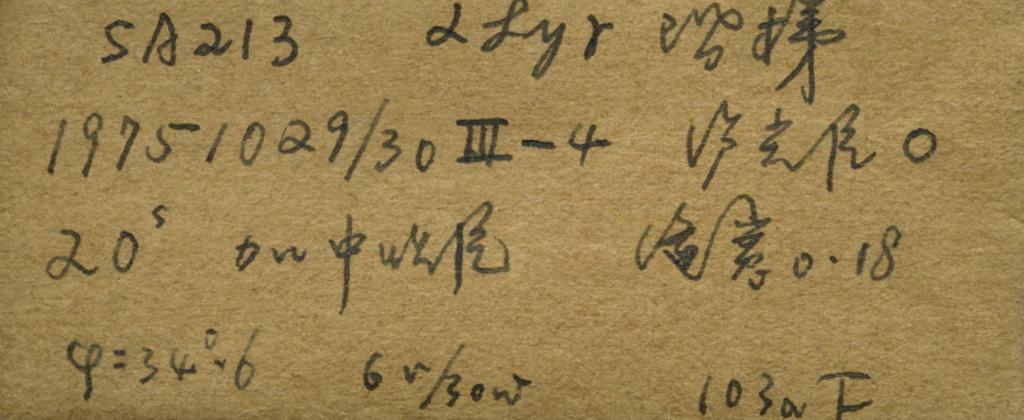 SA213 α Lyr 阶梯
19751029/30 III-4 光 0
20ˢ 加中 0.18
φ=34°.6 6v/30w 103aF